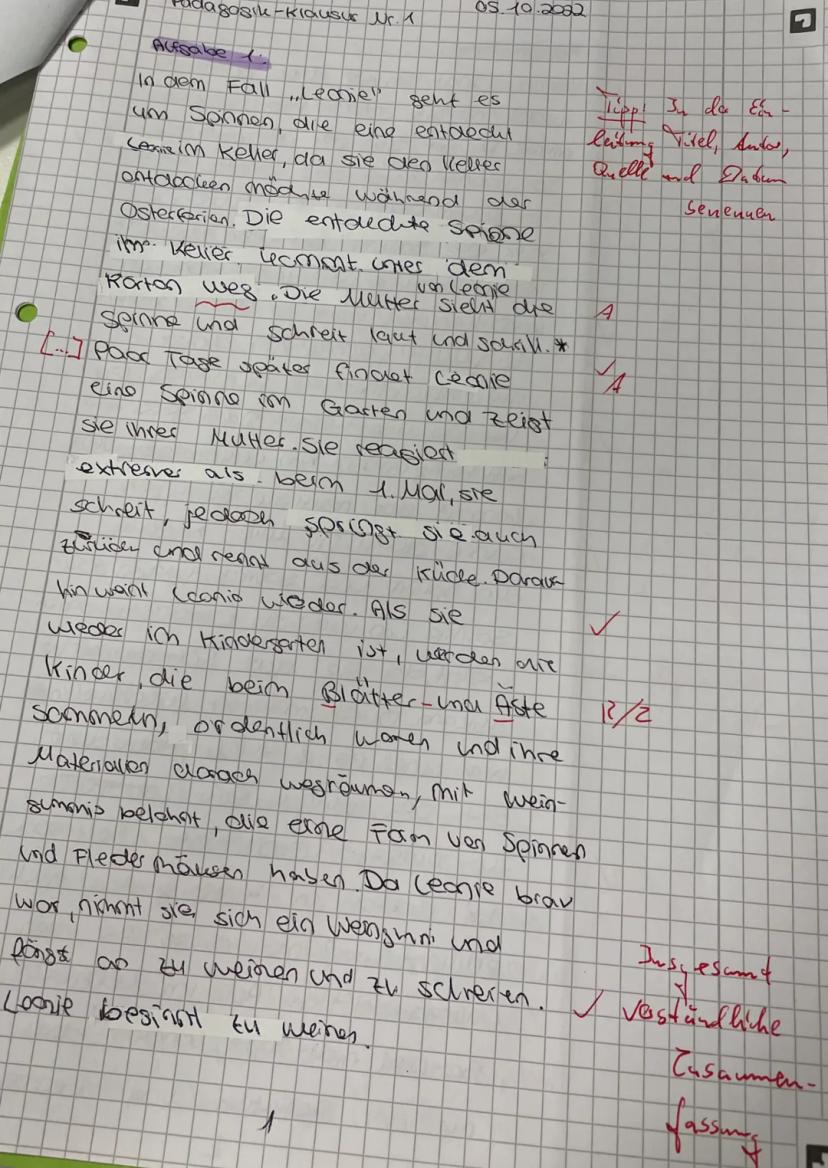 Pädagogik-Klausur Nr. 1 05.10.2022
Aufgabe 1.
In dem Fall „Leonie" geht es
um Spinnen, die eine entdeckt
Leonie im Keller, da sie den Keller
entdecken möchte während der
Osterferien. Die entdeckte Spinne
im Keller, kommt unter dem
Karton weg. Die Mutter von Leonie sieht die
Spinne und schreit laut und schrill.*
[...] Paar Tage später findet Leonie
eine Spinne im Garten und zeigt
sie ihrer Mutter. Sie reagiert
extremer als beim 1. Mal, sie
schreit, jedoch springt sie auch
zurück und rennt aus der Küche. Darauf
hin weint Leonie wieder. Als sie
wieder im Kindergarten ist, werden die
Kinder, die beim Blätter-und Äste
sammeln, ordentlich waren und ihre
Materialien danach wegräumen, mit Wein-
gummis belohnt, die eine Form von Spinnen
und Fledermäusen haben. Da Leonie brav
war, nimmt sie sich ein Weingummi und
fängt an zu weinen und zu schreien.
Leonie beginnt zu weinen.
1
Tipp! In der Ein-
leitung Titel, Autor,
Quelle und Datum
benennen
A
✓
A
✓
R/Z
✓
Insgesamt
verständliche
Zusammen-
fassung